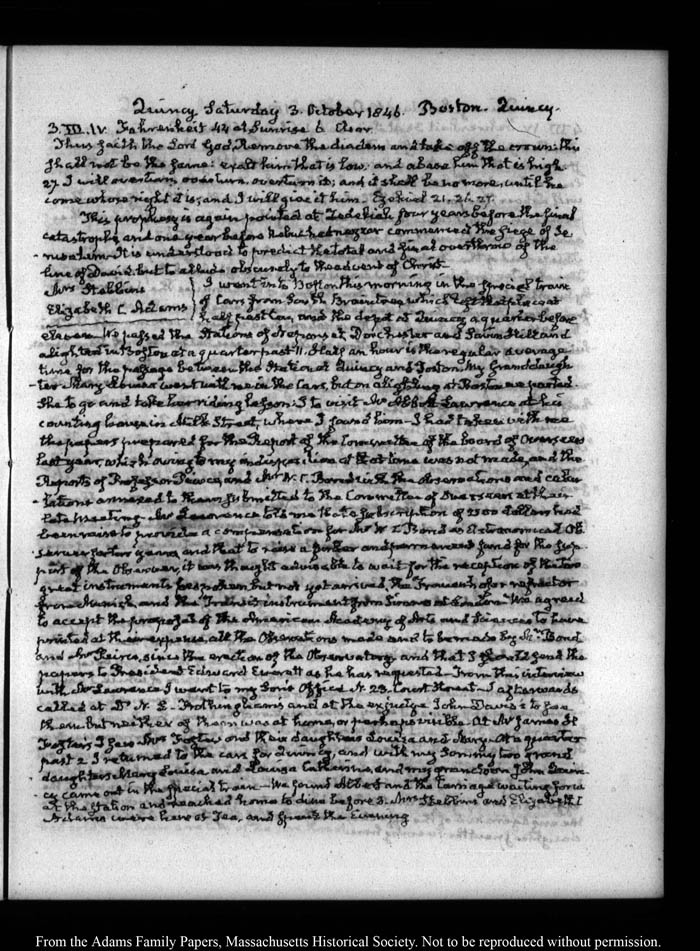 Quincy Saturday 3. October 1846. Boston. Quincy.
3. III. IV. Fahrenheit 42 at Sunrise 6 Clear.
Thus saith the Lord God, Remove the diadem and take off the crown: this
shall not be the same: exalt him that is low, and abase him that is high
27. I will overturn, overturn, overturn it; and it shall be no more, until he
come whose right it is; and I will give it him. Ezekiel 21. 26. 27.
This prophesy is again pointed at Zedekiah four years before the final
catastrophe, and one year before Nebuchadnezzar commenced the siege of Je-
-rusalem. It is understood to predict the total and final overthrow of the
line of David, but to allude obscurely to the advent of Christ.
Mrs Stebbins } I went in to Boston this morning in the special train
Elizabeth C. Adams } of Cars from South Braintree, which left that place at
half past ten, and the depot at Quincy a quarter before
Eleven. We passed the Stations of Neponset, Dorchester and Savin Hill and
alighted in Boston at a quarter past 11. Half an hour is the regular average
time for the passage between the Station at Quincy and Boston. My Granddaugh-
-ter Mary Louisa went with me in the Cars, but on alighting at Boston we parted.
She to go and take her riding lesson: I to visit Mr Abbott Lawrence at his
counting house in Milk Street, where I found him. I had taken with me
the papers prepared for the Report of the Committee of the board of Overseers
last year, which owing to my indisposition at that time was not made, and the
Reports of Professor Peirce, and Mr W. C. Bond with the observations and calcu
-lations annexed to them submitted to the Committee of Overseers at their
late meeting. Mr Lawrence told me that a subscription of 2500 dollars had
been raised to provide a compensation for Mr W C Bond as Astronomical Ob-
-server for two years, and that to raise a further and permanent fund for the sup-
port of the Observer, it was thought adviseable to wait for the reception of the two
great instruments bespoken but not yet arrived, the Frauenhofer refractor
from Munich, and the Transit instrument from Simms at London. We agreed
to accept the proposal of the American Academy of Arts and Sciences to have
printed at their expense, all the Observations made and to be made by Mr Bond
and Mr Peirce, since the erection of the Observatory and that I should send the
papers to President Edward Everett as he has requested. From this interview
with Mr Lawrence I went to my Son's Office N. 23. Court Street. I afterwards
called at Dr N. L. Frothingham's and at the exjudge John Davis's to see
them but neither of them was at home, or perhaps visible. At Mr James H
Foster's I saw Mrs Foster and their daughters Louisa and Mary. At a quarter
past 2 I returned to the cars for Quincy, and with my Son my two grand
daughters Mary Louisa and Louisa Catherine, and my grandson John Quin-
cy came out in the special train. We found Albert and the Carriage waiting for us
at the Station and reached home to dine before 3. Mrs Stebbins and Elizabeth C
Adams were here at Tea, and spent the Evening
From the Adams Family Papers, Massachusetts Historical Society. Not to be reproduced without permission.